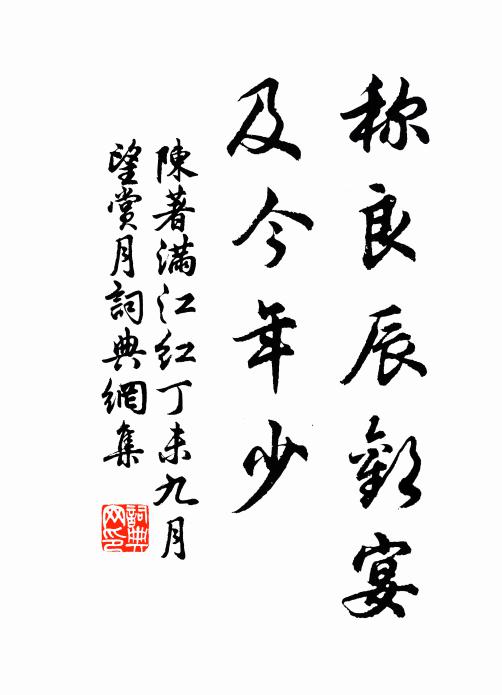 称良辰歡宴
及今年少
陳著滿江紅丁未九月
望賞月詞典網集
詞典
网印